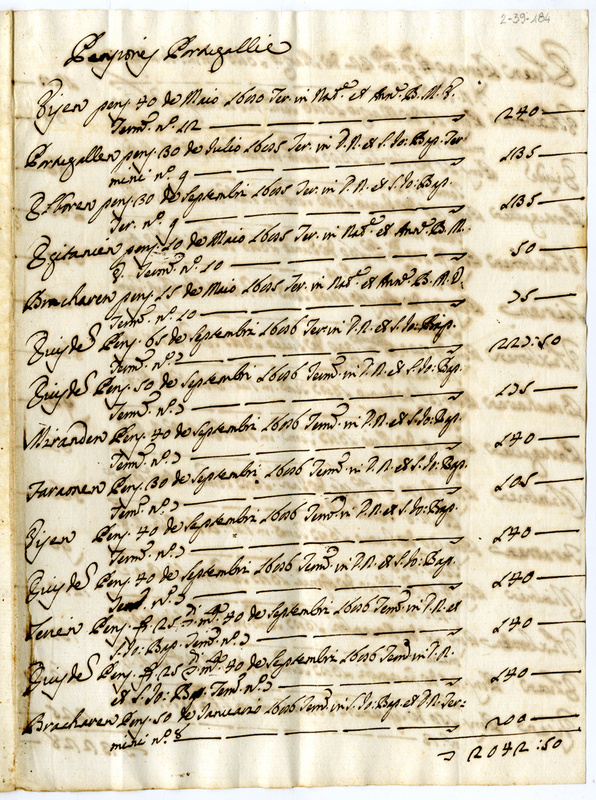 2-39-184
Pensiones Portugallie
Visen pens. 40 de Maio 1600 Ter. in Nat.e et Ann.e B. M. V.
Term.i n.o 12 240
Portugallen pens. 30 de Julio 1605 Ter. in D. N. et S. Jo: Bap. Ter
mini n.o 9 135
Elboren pens. 30 de Septembri 1605 Ter. in D. N. et S. Jo: Bap.
Ter. n.o 9 135
Egitanien pens. 10 de Maio 1605 Ter. in Nat.e et Ann.e B. M.
V. Term.i n.o 10 50
Bracharen pens. 15 de Maio 1605 Ter. in Nat.e et Ann.e B. M. V.
Term.i n.o 10 75
Eiusdem Pens. 65 de Septembri 1606 Ter. in D. N. et S. Jo: Bap.
Term.i n.o 7 227:50
Eiusdem Pens. 50 de Septembri 1606 Term.i in D. N. et S. Jo: Bap.
Term.i n.o 7 175
Miranden Pens. 40 de Septembri 1606 Term.i in D. N. et S. Jo: Bap.
Term.i n.o 7 140
Faraonen Pens. 30 de Septembri 1606 Term.i in D. N. et S. Jo: Bap.
Term.i n.o 7 105
Visen Pens. 40 de Septembri 1606 Term.i in D. N. et S. Jo: Bap.
Term.i n.o 7 140
Eiusdem Pens. 40 de Septembri 1606 Term.i in D. N. et S. Jo: Bap.
Term.i n.o 7 140
Pens. 25 40 de Septembri 1606 Term.i in D. N. et
S. Jo: Bap. Term.i n.o 7 140
Eiusdem Pens. 25 40 de Septembri 1606 Term.i in D. N.
et S. Jo: Bap. Term.i n.o 7 140
Bracharen Pens. 50 de Januario 1606 Term.i in S. Jo: Bap. et D. N. Ter:
mini n.o 8 200
2042:50